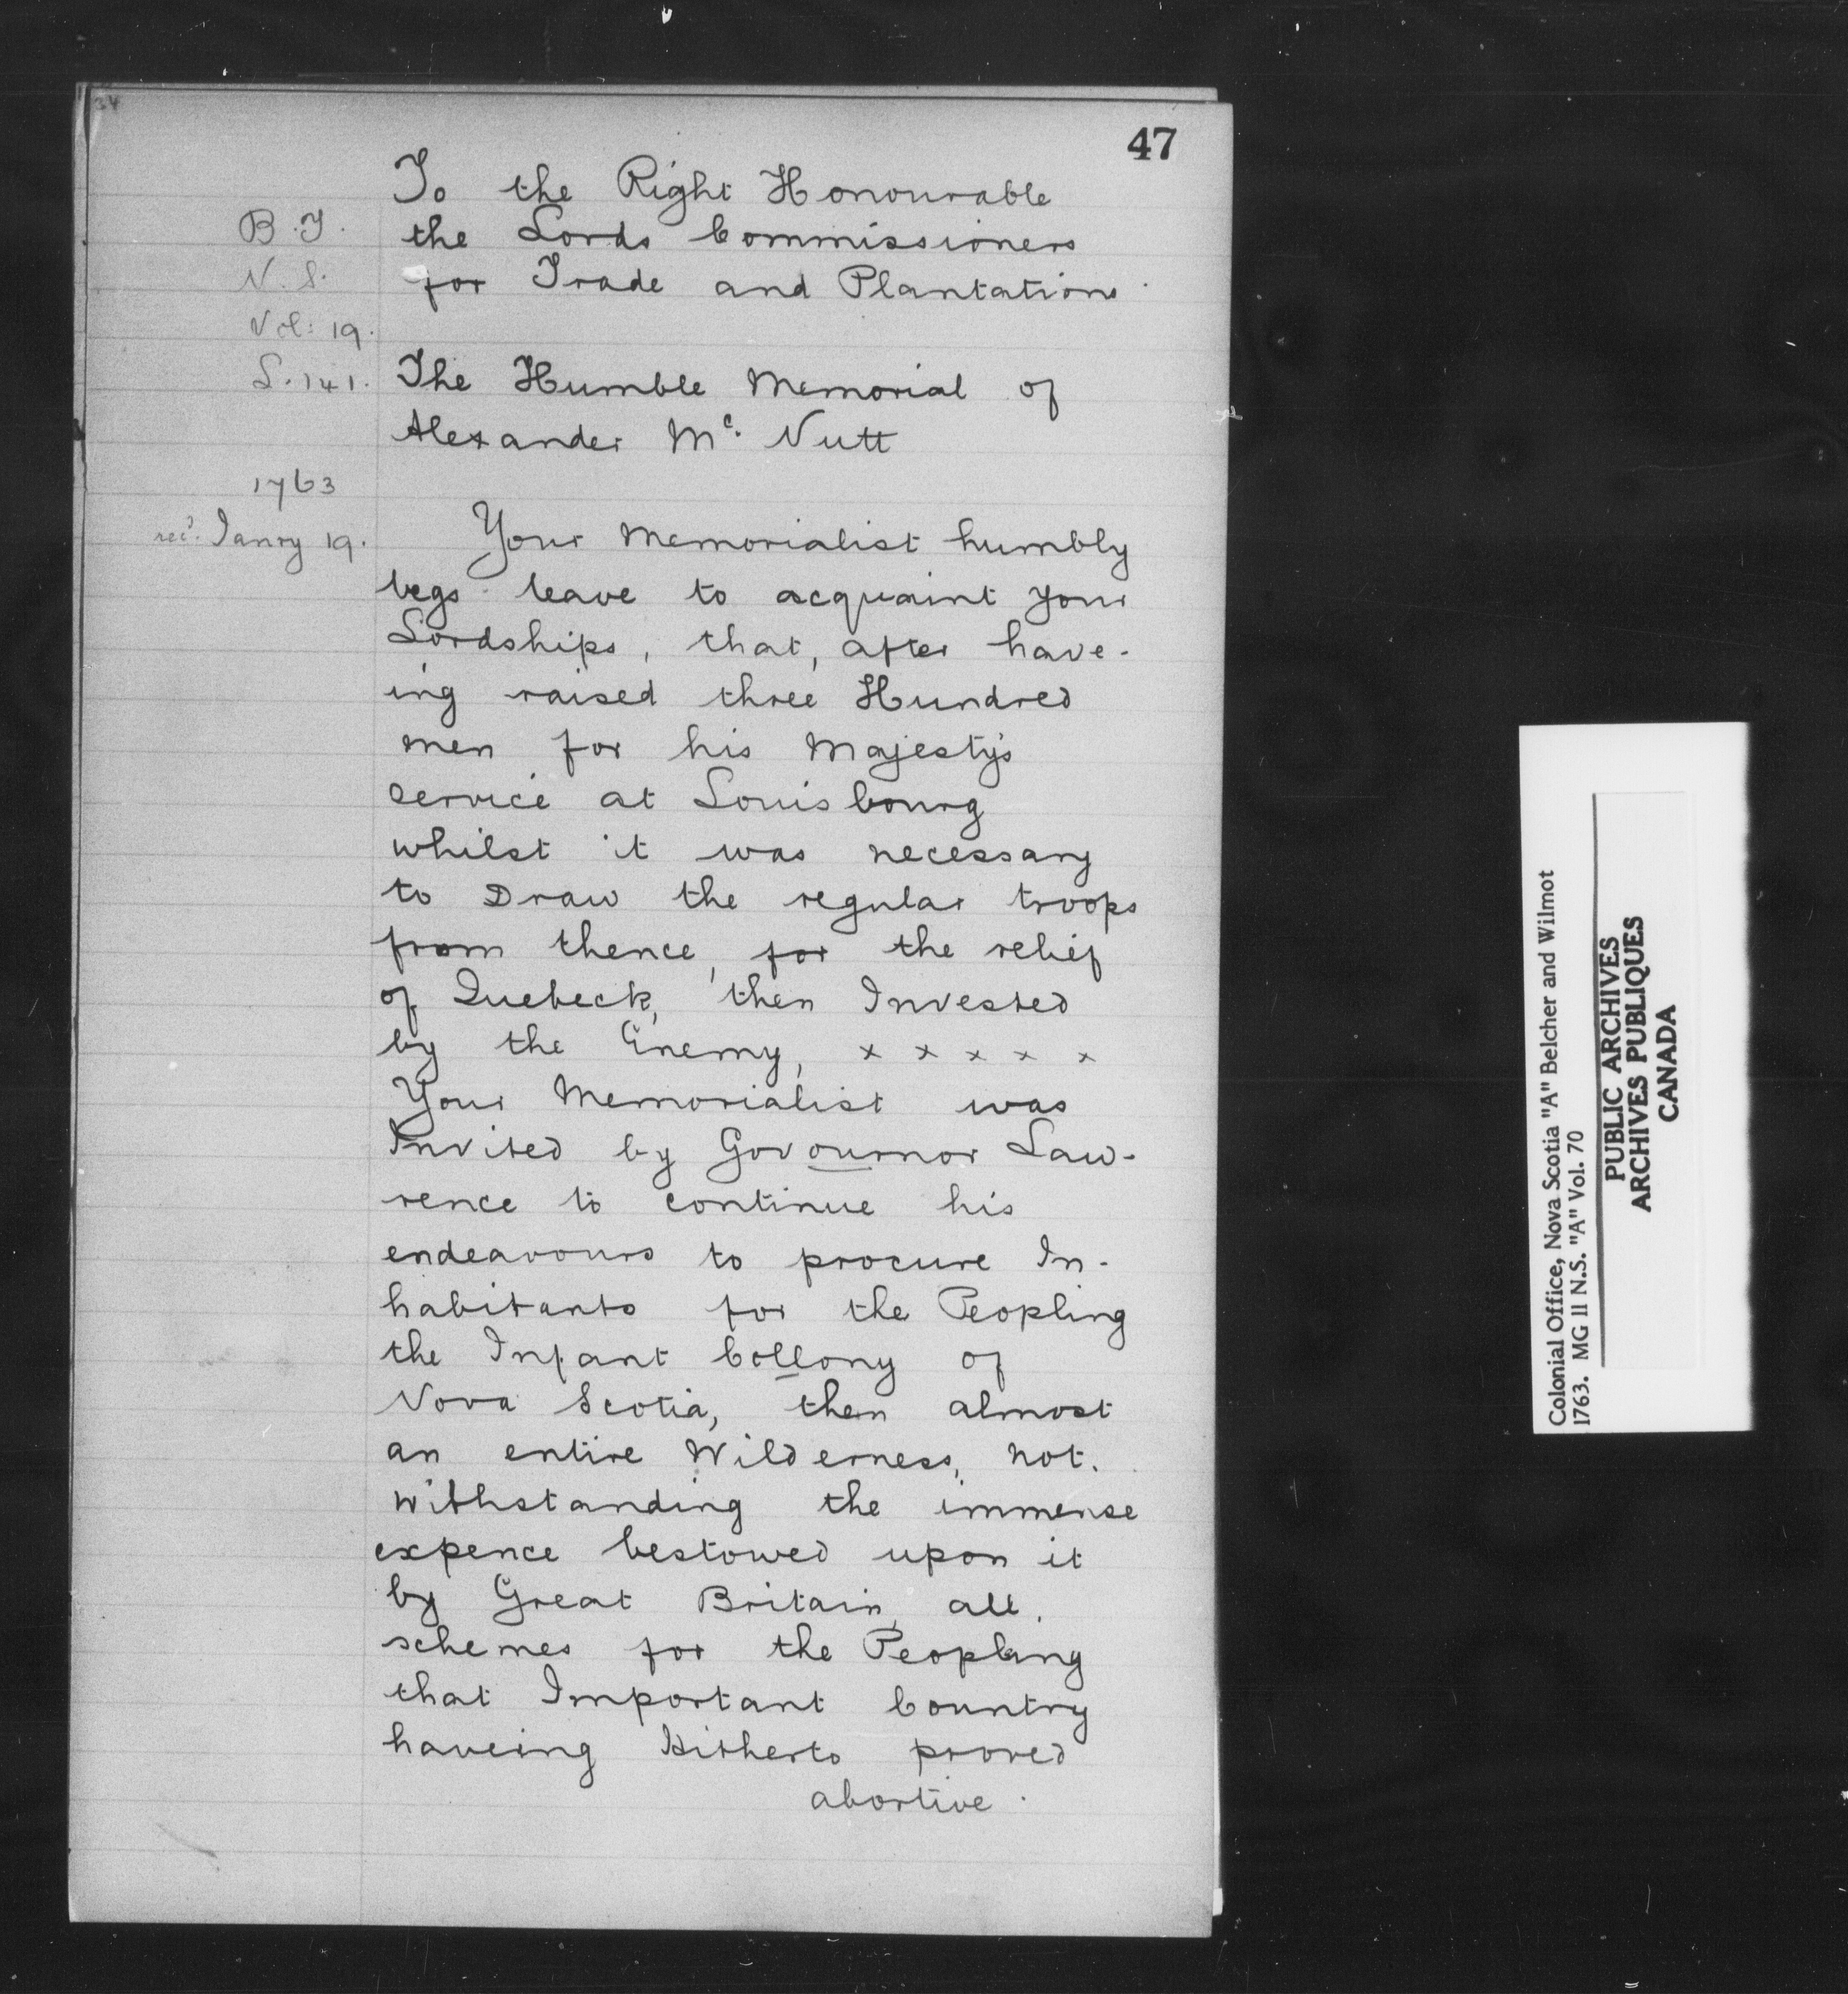 34
47
To the Right Honourable
the Lords Commissioners
for Trade and Plantations.
B.T.
N.S.
Vol: 19.
L. 141.
The Humble Memorial of
Alexander Mc. Nutt
1763
recd. Janry 19.
Your Memorialist humbly
begs leave to acquaint your
Lordships, that, after have-
ing raised three Hundred
men for his Majesty's
service at Louisbourg
whilst it was necessary
to Draw the regular troops
from thence, for the relief
of Quebeck, then Invested
by the Enemy, x x x x x
Your Memorialist was
Invited by Govournor Law-
rence to continue his
endeavours to procure In-
habitants for the Peopling
the Infant Collony of
Nova Scotia, then almost
an entire Wilderness, not-
withstanding the immense
expence bestowed upon it
by Great Britain, all
schemes for the Peopling
that Important Country
haveing Hitherto proved
abortive.
Colonial Office, Nova Scotia "A" Belcher and Wilmot
1763. MG 11 N.S. "A" Vol. 70
PUBLIC ARCHIVES
ARCHIVES PUBLIQUES
CANADA